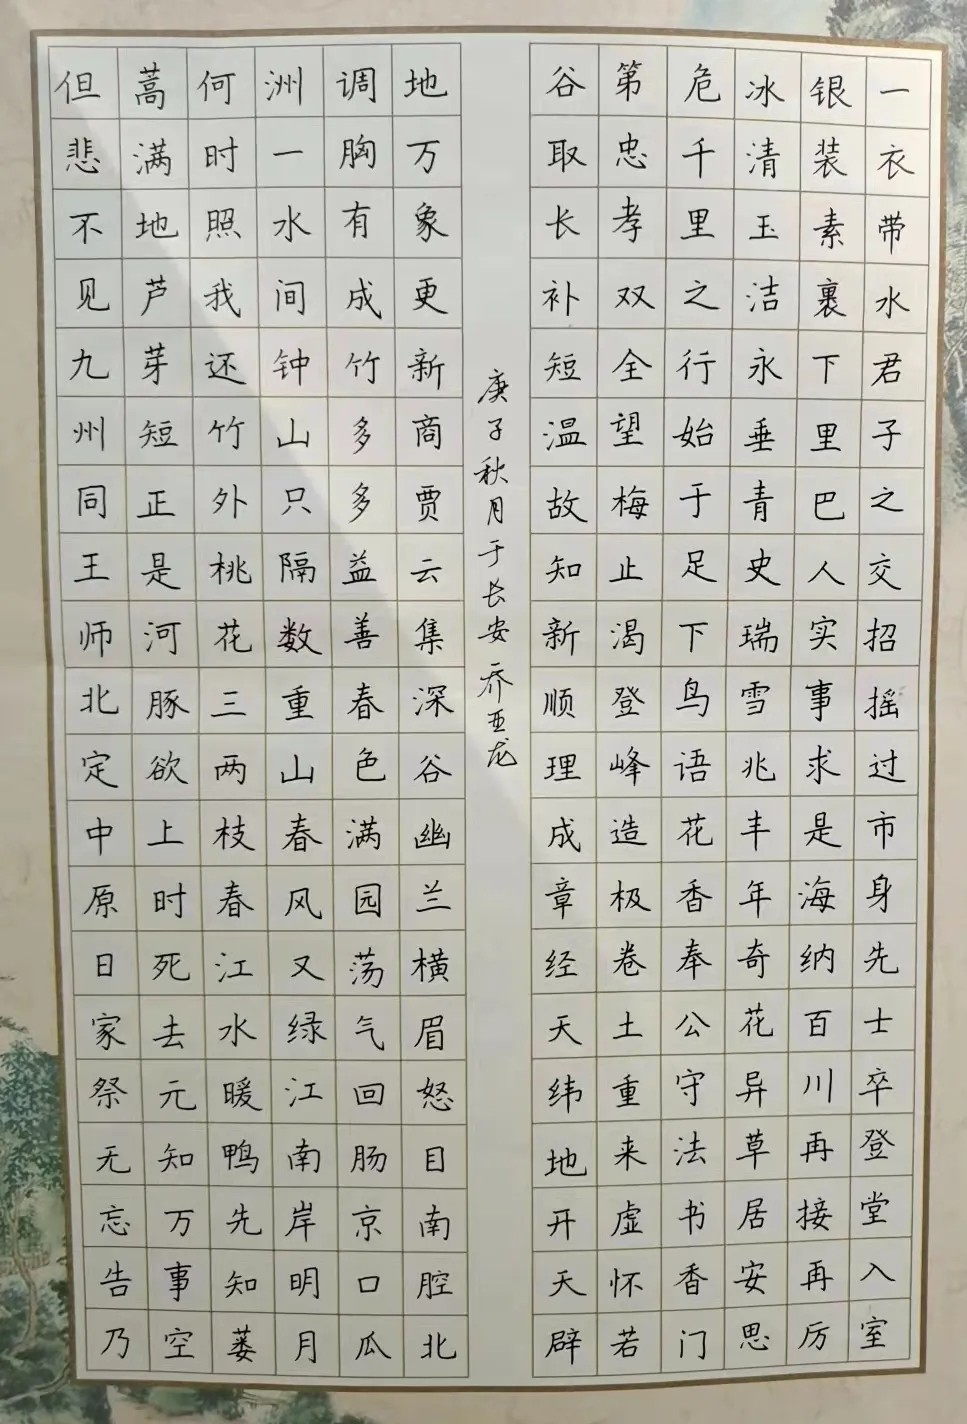 一衣带水君子之交招摇过市身先士卒登堂入室
银装素裹下里巴人实事求是海纳百川再接再厉
冰清玉洁永垂青史瑞雪兆丰年奇花异草居安思
危千里之行始于足下鸟语花香奉公守法书香门
第忠孝双全望梅止渴登峰造极卷土重来虚怀若
谷取长补短温故知新顺理成章经天纬地开天辟
庚子秋月于长安乔亚龙
地万象更新商贾云集深谷幽兰横眉怒目南腔北
调胸有成竹多多益善春色满园荡气回肠京口瓜
洲一水间钟山只隔数重山春风又绿江南岸明月
何时照我还竹外桃花三两枝春江水暖鸭先知蒌
蒿满地芦芽短正是河豚欲上时死去元知万事空
但悲不见九州同王师北定中原日家祭无忘告乃